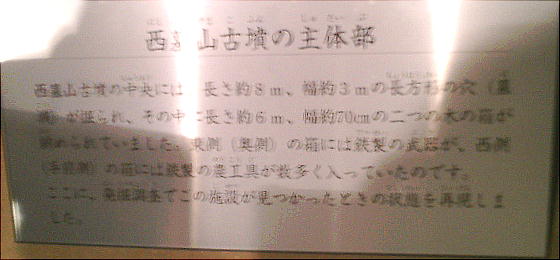 西墓山古墳の主体部
西墓山古墳の中央には 長さ約8m、幅約3mの長方形の穴（墓
壙）が掘られ、その中に長さ約6m、幅約70cmの二つの木の箱が
納められていました。東側（奥側）の箱には鉄製の武器が、西側
（手前側）の箱には鉄製の農工具が数多く入っていたのです。
ここに、発掘調査でこの施設が見つかったときの状態を再現しま
した。